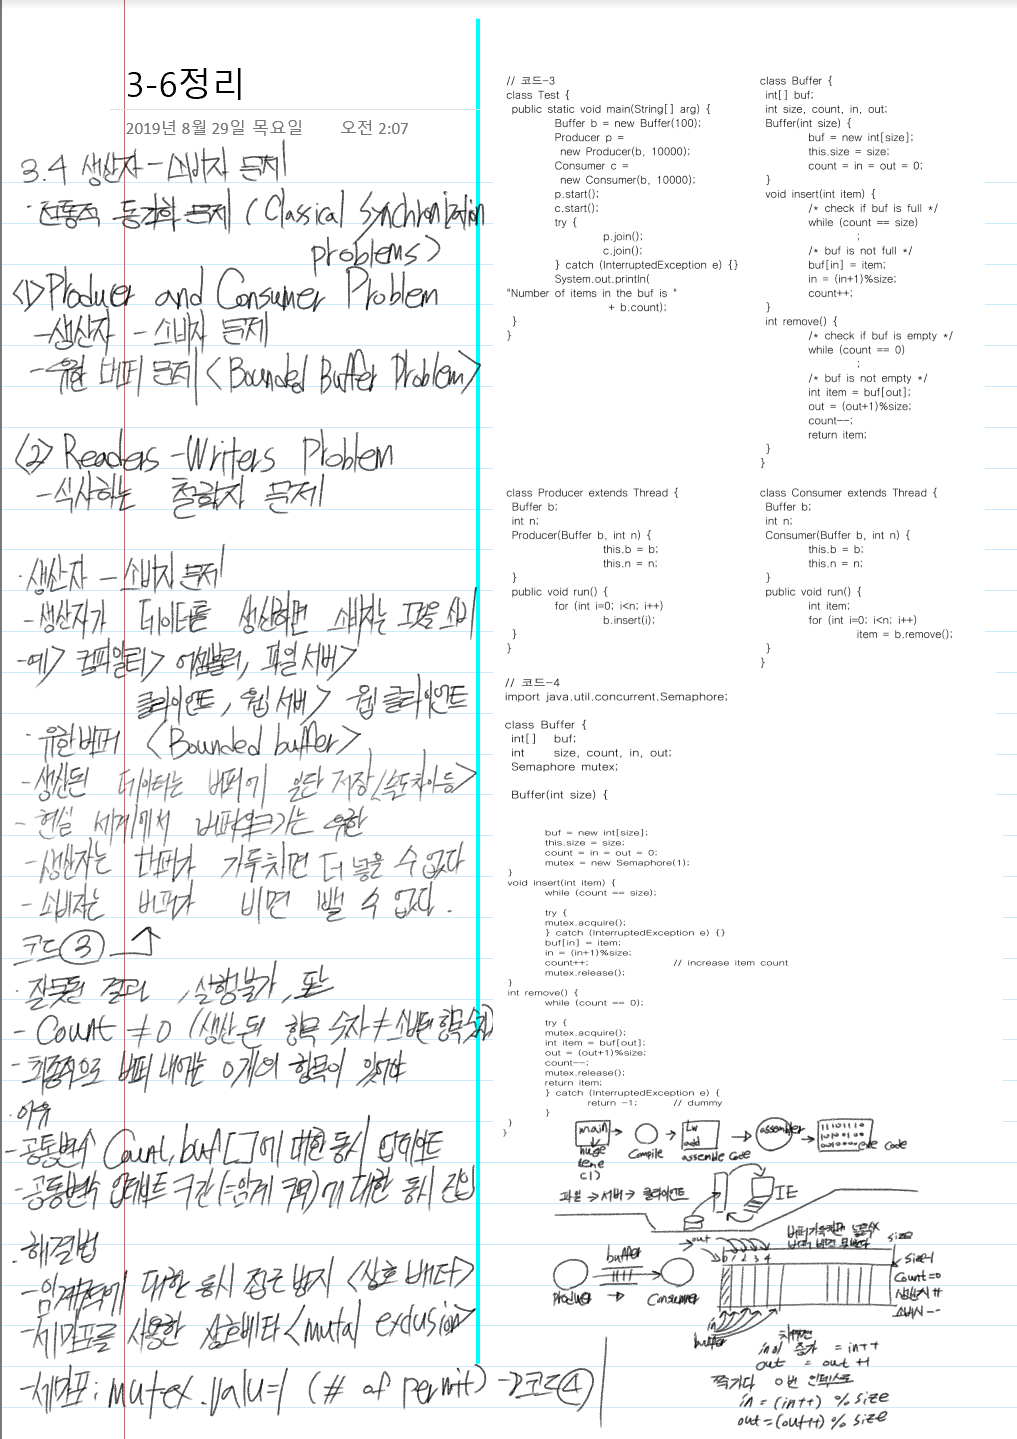 3-6정리
2019년 8월 29일 목요일 오전 2:07
3.4 생산자 - 소비자 문제
· 전통적 동기화 문제 (Classical Synchronization
problems>
<1> Producer and Consumer Problem
- 생산자 - 소비자 문제
- 유한 버퍼 문제 <Bounded Buffer Problem>
<2> Readers - Writers Problem
- 식사하는 철학자 문제
· 생산자 - 소비자 문제
- 생산자가 데이터를 생산하면 소비자는 그것을 소비
- 예> 컴파일러> 어셈블러, 파일 서버>
클라이언트, 웹 서버> 웹 클라이언트
· 유한버퍼 <Bounded buffer>
- 생산된 데이터는 버퍼에 일단 저장(속도차이 등>
- 현실 세계에서 버퍼의크기는 유한
- 생산자는 버퍼가 가득차면 더 넣을 수 없다
- 소비자는 버퍼가 비면 뺄 수 없다.
코드 ③
- 잘못된 결과, 실행불가, 또는
- Count ≠ 0 (생산된 항목 숫자 ≠ 소비된 항목숫자)
- 최종적으로 버퍼 내에는 0개의 항목이 있어야
· 이유
- 공통변수 Count, buf[]에 대한 동시 업데이트
- 공통변수 업데이트 구간(=임계 구역)에 대한 동시 진입
· 해결법
- 임계구역에 대한 동시 접근 방지 <상호 배타>
- 세마포를 사용한 상호배타 <mutal exclusion>
- 세마포: mutex.value=1 (# of permit) -> 코드④
// 코드-3
class Test {
public static void main(String[] arg) {
Buffer b = new Buffer(100);
Producer p =
new Producer(b, 10000);
Consumer c =
new Consumer(b, 10000);
p.start();
c.start();
try {
p.join();
c.join();
} catch (InterruptedException e) {}
System.out.println(
"Number of items in the buf is "
+ b.count);
}
}
class Buffer {
int[] buf;
int size, count, in, out;
Buffer(int size) {
buf = new int[size];
this.size = size;
count = in = out = 0;
}
void insert(int item) {
/* check if buf is full */
while (count == size)
;
/* buf is not full */
buf[in] = item;
in = (in+1)%size;
count++;
}
int remove() {
/* check if buf is empty */
while (count == 0)
;
/* buf is not empty */
int item = buf[out];
out = (out+1)%size;
count--;
return item;
}
}
class Producer extends Thread {
Buffer b;
int n;
Producer(Buffer b, int n) {
this.b = b;
this.n = n;
}
public void run() {
for (int i=0; i<n; i++)
b.insert(i);
}
}
class Consumer extends Thread {
Buffer b;
int n;
Consumer(Buffer b, int n) {
this.b = b;
this.n = n;
}
public void run() {
int item;
for (int i=0; i<n; i++)
item = b.remove();
}
}
// 코드-4
import java.util.concurrent.Semaphore;
class Buffer {
int[] buf;
int size, count, in, out;
Semaphore mutex;
Buffer(int size) {
buf = new int[size];
this.size = size;
count = in = out = 0;
mutex = new Semaphore(1);
}
void insert(int item) {
while (count == size);
try {
mutex.acquire();
} catch (InterruptedException e) {}
buf[in] = item;
in = (in+1)%size;
count++; // increase item count
mutex.release();
}
int remove() {
while (count == 0);
try {
mutex.acquire();
int item = buf[out];
out = (out+1)%size;
count--;
mutex.release();
return item;
} catch (InterruptedException e) {
return -1; // dummy
}
}
}
main
Compile
Lw
add
assemble Code
assembler
11101110
10100100
exe Code
서버 -> 클라이언트
IE
out
size
0 1 2 3 4
size-1
Count=0
생산시 ++
소비시 --
buffer
Producer
Consumer
in
buffer
in이 증가 = in++
out = out ++
0번 인덱스로
in = (in++) % size
out = (out++) % size